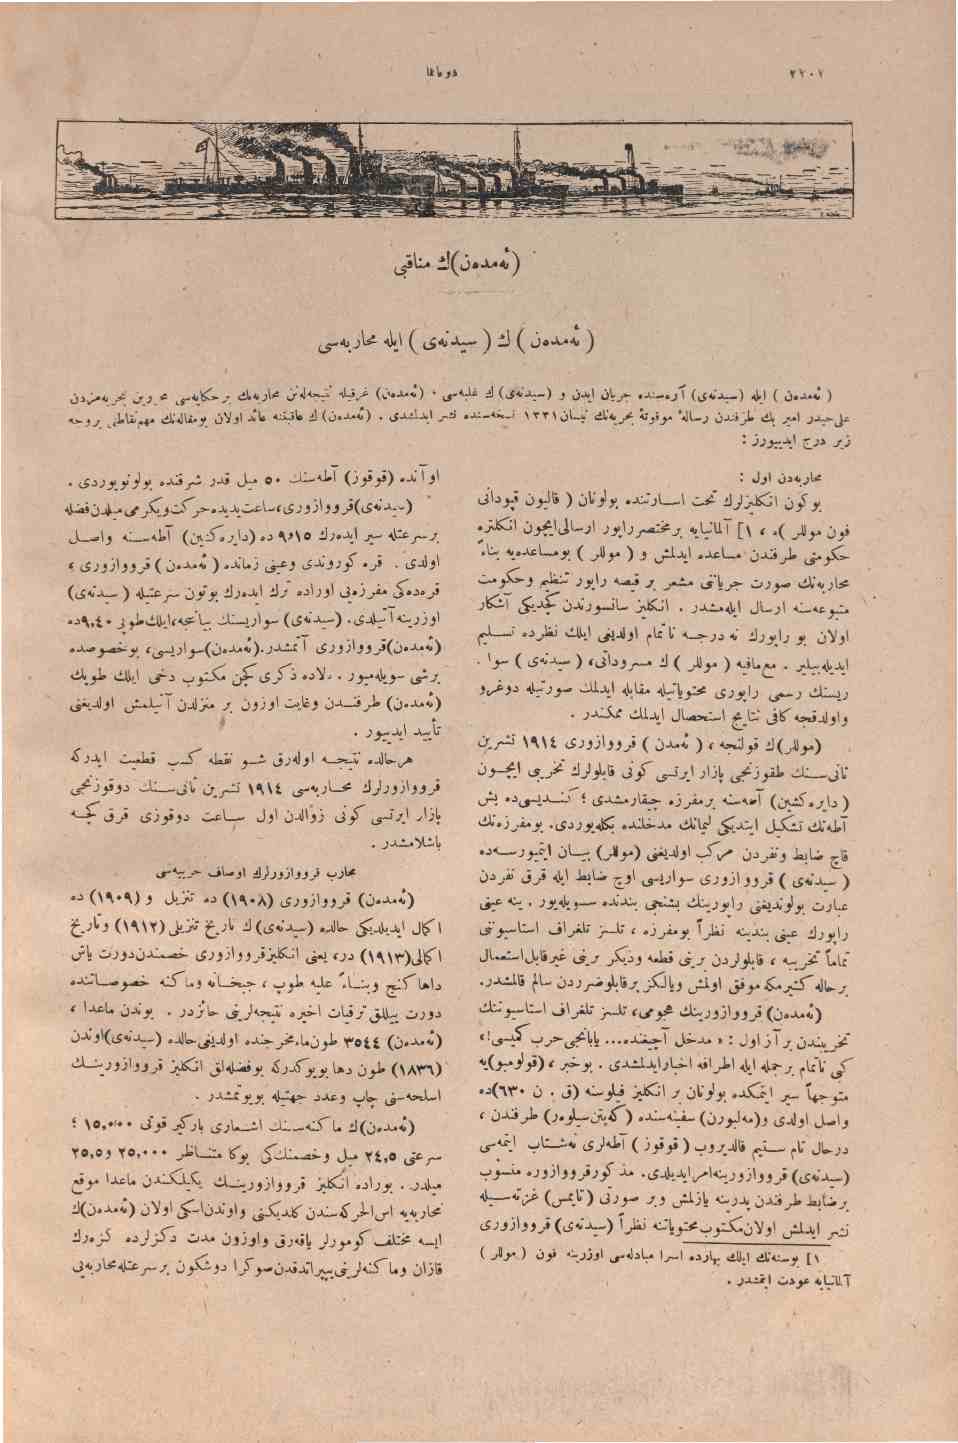 ٢٢٠٢
دوننما
(ئه‌مده‌ن)ك مناقبی
( ئه‌مده‌ن ) ك ( سیدنه‌ی ) ایله محاربه‌سی
( ئه‌مده‌ن ) ایله (سیدنه‌ی) آره‌سنده جریان ایدن و (سیدنه‌ی) ك غلبه‌سی ، (ئه‌مده‌ن) غرقیله نتیجه‌لەنن محاربه‌نك بر حکایه‌سی محررین بحریه‌مزدن
علی‌حیدر امیر بك طرفندن رسالهٔ موقوتهٔ بحریه‌نك نیسان ١٣٣١ نسخه‌سنده نشر ایدلشدی . (ئه‌مده‌ن) ك عاقبتنه عائد اولان بومقاله‌نك مهم‌نقاطنی بروجه
زیر درج ایدییورز :
محاربه‌دن اول :
بوكون انكلیزلرك تحت اسارتنده بولونان ( قالیون قپودانی
فون موللر )ه ، ١] آلمانیایه برمختصرراپور ارسالی‌ایچون انكلتره
حكومتی طرفندن مساعده ایدلمش و ( موللر ) بومساعده‌یه بناءً
محاربه‌نك صورت جریاننی مشعر بر قیصه راپور تنظیم وحكومت
متبوعه‌سنه ارسال ایله‌مشدر . انكلیز سانسورندن كچدیكی آشكار
اولان بو راپورك نه درجه ناتمام اولدیغی ایلك نظرده تسلیم
ایدیله‌بیلیر . مع‌مافیه ( موللر ) ك مسروداتی، ( سیدنه‌ی ) سوا .
ریسنك رسمی راپوری محتویاتیله مقابله ایدلمك صورتیله دوغرو
واولدقجه كافی نتایج استحصال ایدلمك ممكندر .
(موللر)ك قولنجه ، ( ئه‌مدن ) قرووازوری ١٩١٤ تشرین
ثانی‌سنك طقوزنجی پازار ایرتسی كونی قابلولرك تخریبی ایچون
( دایره‌كشین) آطه‌سنه برمفرزه چیقارمشدی ؛ كندیسی‌ده بش
آطه‌نك تشكیل ایتدیكی لیمانك مدخلنده بكله‌یوردی. بومفرزه‌نك
قاچ ضابط ونفردن مركب اولدیغنی (موللر) بیان ایتمیورسه‌ده
( سیدنه‌ی ) قرووازوری سواریسی اوچ ضابط ایله قرق نفردن
عبارت بولوندیغنی راپورینك بشنجی بندنده سویله‌یور . ینه عینی
راپورك عینی بندینه نظراً بومفرزه ، تلسز تلغراف استاسیوننی
تماماً تخریبه ، قابلولردن برینی قطعه ودیكر برینی غیرقابل‌استعمال
برحاله كتیرمكه موفق اولمش ویالكز برقابلوضررـدن سالم قالمشدر.
(ئه‌مده‌ن) قرووازورینك هجومی، تلسز تلغراف استاسیوننك
تخریبندن بر آز اول : « مدخل آچیغنده... یابانجی‌حرب كمیسی!»
كبی ناتمام برجمله ایله اطرافه اخبارایدلمشدی . بوخبر ، (قولومبو)یه
متوجهاً سیر ایتمكده بولونان بر انكلیز فیلوسنه (ق . ن ٦٣٠)ده
واصل اولدی و(مه‌لبورن) سفینه‌سنده (كه‌پتن‌سیلوه‌ر) طرفندن ،
درحال تام ستیم قالدیروب ( قوقوز ) آطه‌لری نه‌شتاب ایتمه‌سی
(سیدنه‌ی) قرووازورینه‌امرایدیلدی. مذكورقرووازوره منسوب
برضابط طرفندن پدرینه یازلمش وبر صورتی (تایمس) غزته‌سیله
نشر ایدلمش اولان‌مكتوب‌محتویاتنه نظراً (سیدنه‌ی) قرووازوری
١] بوسنه‌نك ایلك بهارنده اسرا مبادله‌سی اوزرینه فون ( موللر )
آلمانیایه عودت ایتمشدر .
اوآنده (قوقوز) آطه‌سنك ٥٠ میل قدر شرقنده بولونویوردی .
(سیدنه‌ی)قرووازوری،ساعت‌یدیده‌حركت‌ویكرمی‌میلدن‌فضله
برسرعتله سیر ایده‌رك ٩،١٥ ده (دایره‌كشین) آطه‌سنه واصل
اولدی . قره كوروندی وعینی زمانده ( ئه‌مده‌ن ) قرووازوری ،
قره‌ده‌كی مفرزه‌یی اوراده ترك ایده‌رك بوتون سرعتیله ( سیدنه‌ی)
اوزرینه آتیلدی. (سیدنه‌ی) سواریسنك بیاننجه،ایلك‌طوپی ٩،٤٠ده
(ئه‌مده‌ن)قرووازوری آتمشدر.(ئه‌مده‌ن)سواریسی، بوخصوصده
برشی سویله‌میور . بالاده ذكری كچن مكتوب دخی ایلك طوپك
(ئه‌مده‌ن) طرفندن وغایت اوزون بر منزلدن آتیلمش اولدیغنی
تأیید ایدییور .
هرحالده نتیجه اوله‌رق شو نقطه كسب قطعیت ایدركه
قرووازورلرك محاربه‌سی ١٩١٤ تشرین ثانی‌سنك دوقوزنجی
پازار ایرتسی كونی زوالدن اول ساعت دوقوزی قرق كچه
باشلامشدر .
محارب قرووازورلرك اوصاف حربیه‌سی
(ئه‌مده‌ن) قرووازوری (١٩٠٨) ده تنزیل و (١٩٠٩) ده
اكمال ایدیلدیكی حالده (سیدنه‌ی) ك تاریخ تنزیلی (١٩١٢) وتاریخ
اكمالی(١٩١٣) در، یعنی انكلیزقرووازوری خصمندن‌دورت یاش
داها كنج وبناءً علیه طوپ ، جبخانه وماكنه خصوصاتنده
دورت ییللق ترقیات اخیره نتیجه‌لرینی حائزدر . بوندن ماعدا ،
(ئه‌مده‌ن) ٣٥٤٤ طون‌ماءمخرجنده اولدیغی‌حالده (سیدنه‌ی)اوندن
(١٨٣٦) طون دها بویوكدركه بوفضله‌لق انكلیز قرووازورینك
اسلحه‌سنی چاپ وعدد جهتیله بویوتمشدر .
(ئه‌مده‌ن)ك ماكنه‌سنك اشعاری باركیر قوتی ١٥،٠٠٠ ؛
سرعتی ٢٤,٥ میل وخصمنك‌كی بوكا متناظر ٢٥,٠٠٠ و٢٥,٥
میلدر. بوراده انكلیز قرووازورینك یكیلكندن ماعدا موقع
محاربه‌یه اس‌الحركه‌سندن كلدیكنی واوندن‌اسكی اولان (ئه‌مده‌ن)ك
ایسه مختلف كومورلر یاقه‌رق واوزون مدت دكزلرده كزه‌رك
قازان وماكنه‌لرینی‌ییپراتدقدن‌صوكرا دوشكون برسرعتله‌محاربه‌یی